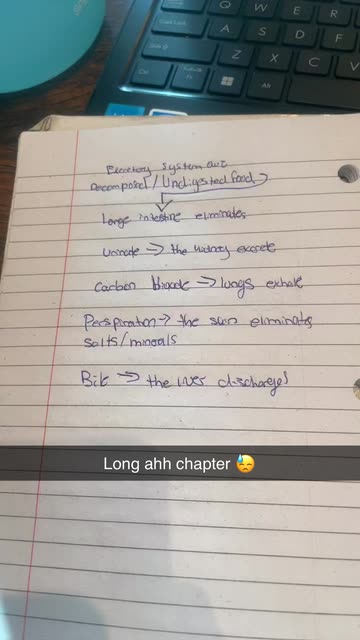 Q W E R
Caps Lock A S D F
Shift Z X C V
Ctrl Fn Alt
Excretory System out
Decomposed / Undigested food
Large intestine eliminates
Urinate → the kidney excrete
Carbon dioxide → lungs exhale
Perspiration → the skin eliminates
salts/minerals
Bile → the liver discharges
Long ahh chapter 😓